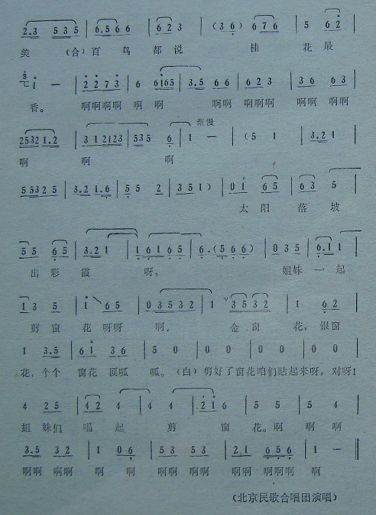 2.3 5 3 5 | 6.5 6 6 | 6 2 3 | (3 6) 6 7 6 | 5 6 2
美 (合)百 鸟 都 说 桂 花 最
1 - | 2 2 7 3 | 6 6 1 6 5 | 3.5 6 6 | 6 2 3 | 3 6 6 3
香。 啊啊啊啊 啊 啊 啊啊 啊啊啊 啊啊 啊啊
渐慢
2532 1.2 | 3 1 2123 | 5 3 5 6 | 1 - | (5 1 | 3.2 1
啊 啊 啊
5 5 3 2 5 | 3.2 1.6 | 5 5 2 | 3 5 1) | 0 1 6 5 | 6 3 5
太 阳 落 坡
5 5 6 5 | 3.2 1 | 1 6 1 6 5 | 6.(5 6 6) | 0 3 5 | 6.1 1
出 彩 霞 呀。 姐妹 一 起
1 3 5 | 1 6 5 | 0 3 5 3 2 | 1 3 5 3 2 | 1 6 2
剪 窗 花 呀 呀 啊。 金 窗 花, 银 窗
1 3.5 | 6 1 3 6 | 5 0 | 0 0 | 0 0 | 0 0
花, 个 个 窗 花 顶 呱 呱。 (白) 剪好了窗花咱们贴起来呀, 对呀!
4 2 5 | 4 2 4 | 4 4 | 2 1 6 | 5 5 | 5 5
姐 妹们 唱 起 剪 窗 花。啊 啊 啊 啊
3.5 3 2 | 1 0 6 | 5 3 5 3 | 2.1 6 5 6 | 1 - ‖
啊啊 啊啊 啊 啊 啊啊 啊啊 啊啊 啊啊啊 啊
(北京民歌合唱团演唱)